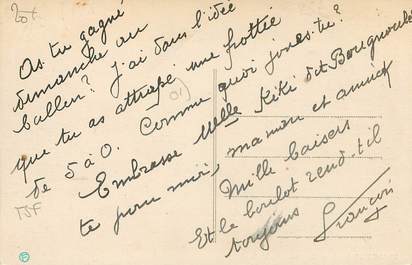 20f
As tu gagné
dimanche au
ballon? J'ai dans l'idée
que tu as attrapé une frottée
de 5 à 0. Comme quoi joues-tu?
Embrasse Melle Kiki dit Bougnoule
te pour moi, maman et annick
Mille baisers
Et le boulot rend-t-il
toujours
François